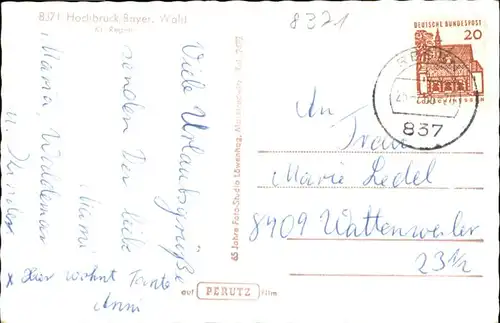 8371 Hochbruck/Bayer. Wald
Kr. Regen
8321
Viele Urlaubsgrüße
senden Dir liebe
Mami
Maria, Waldemar
u. Kinder
x Hier wohnt Tante
Anni
65 Jahre Foto-Studio Löwenhag,
auf PERUTZ Film
DEUTSCHE BUNDESPOST
20
REGEN
837
An
Frau
Marie Ledel
8409 Wattenweiler
23 1/2